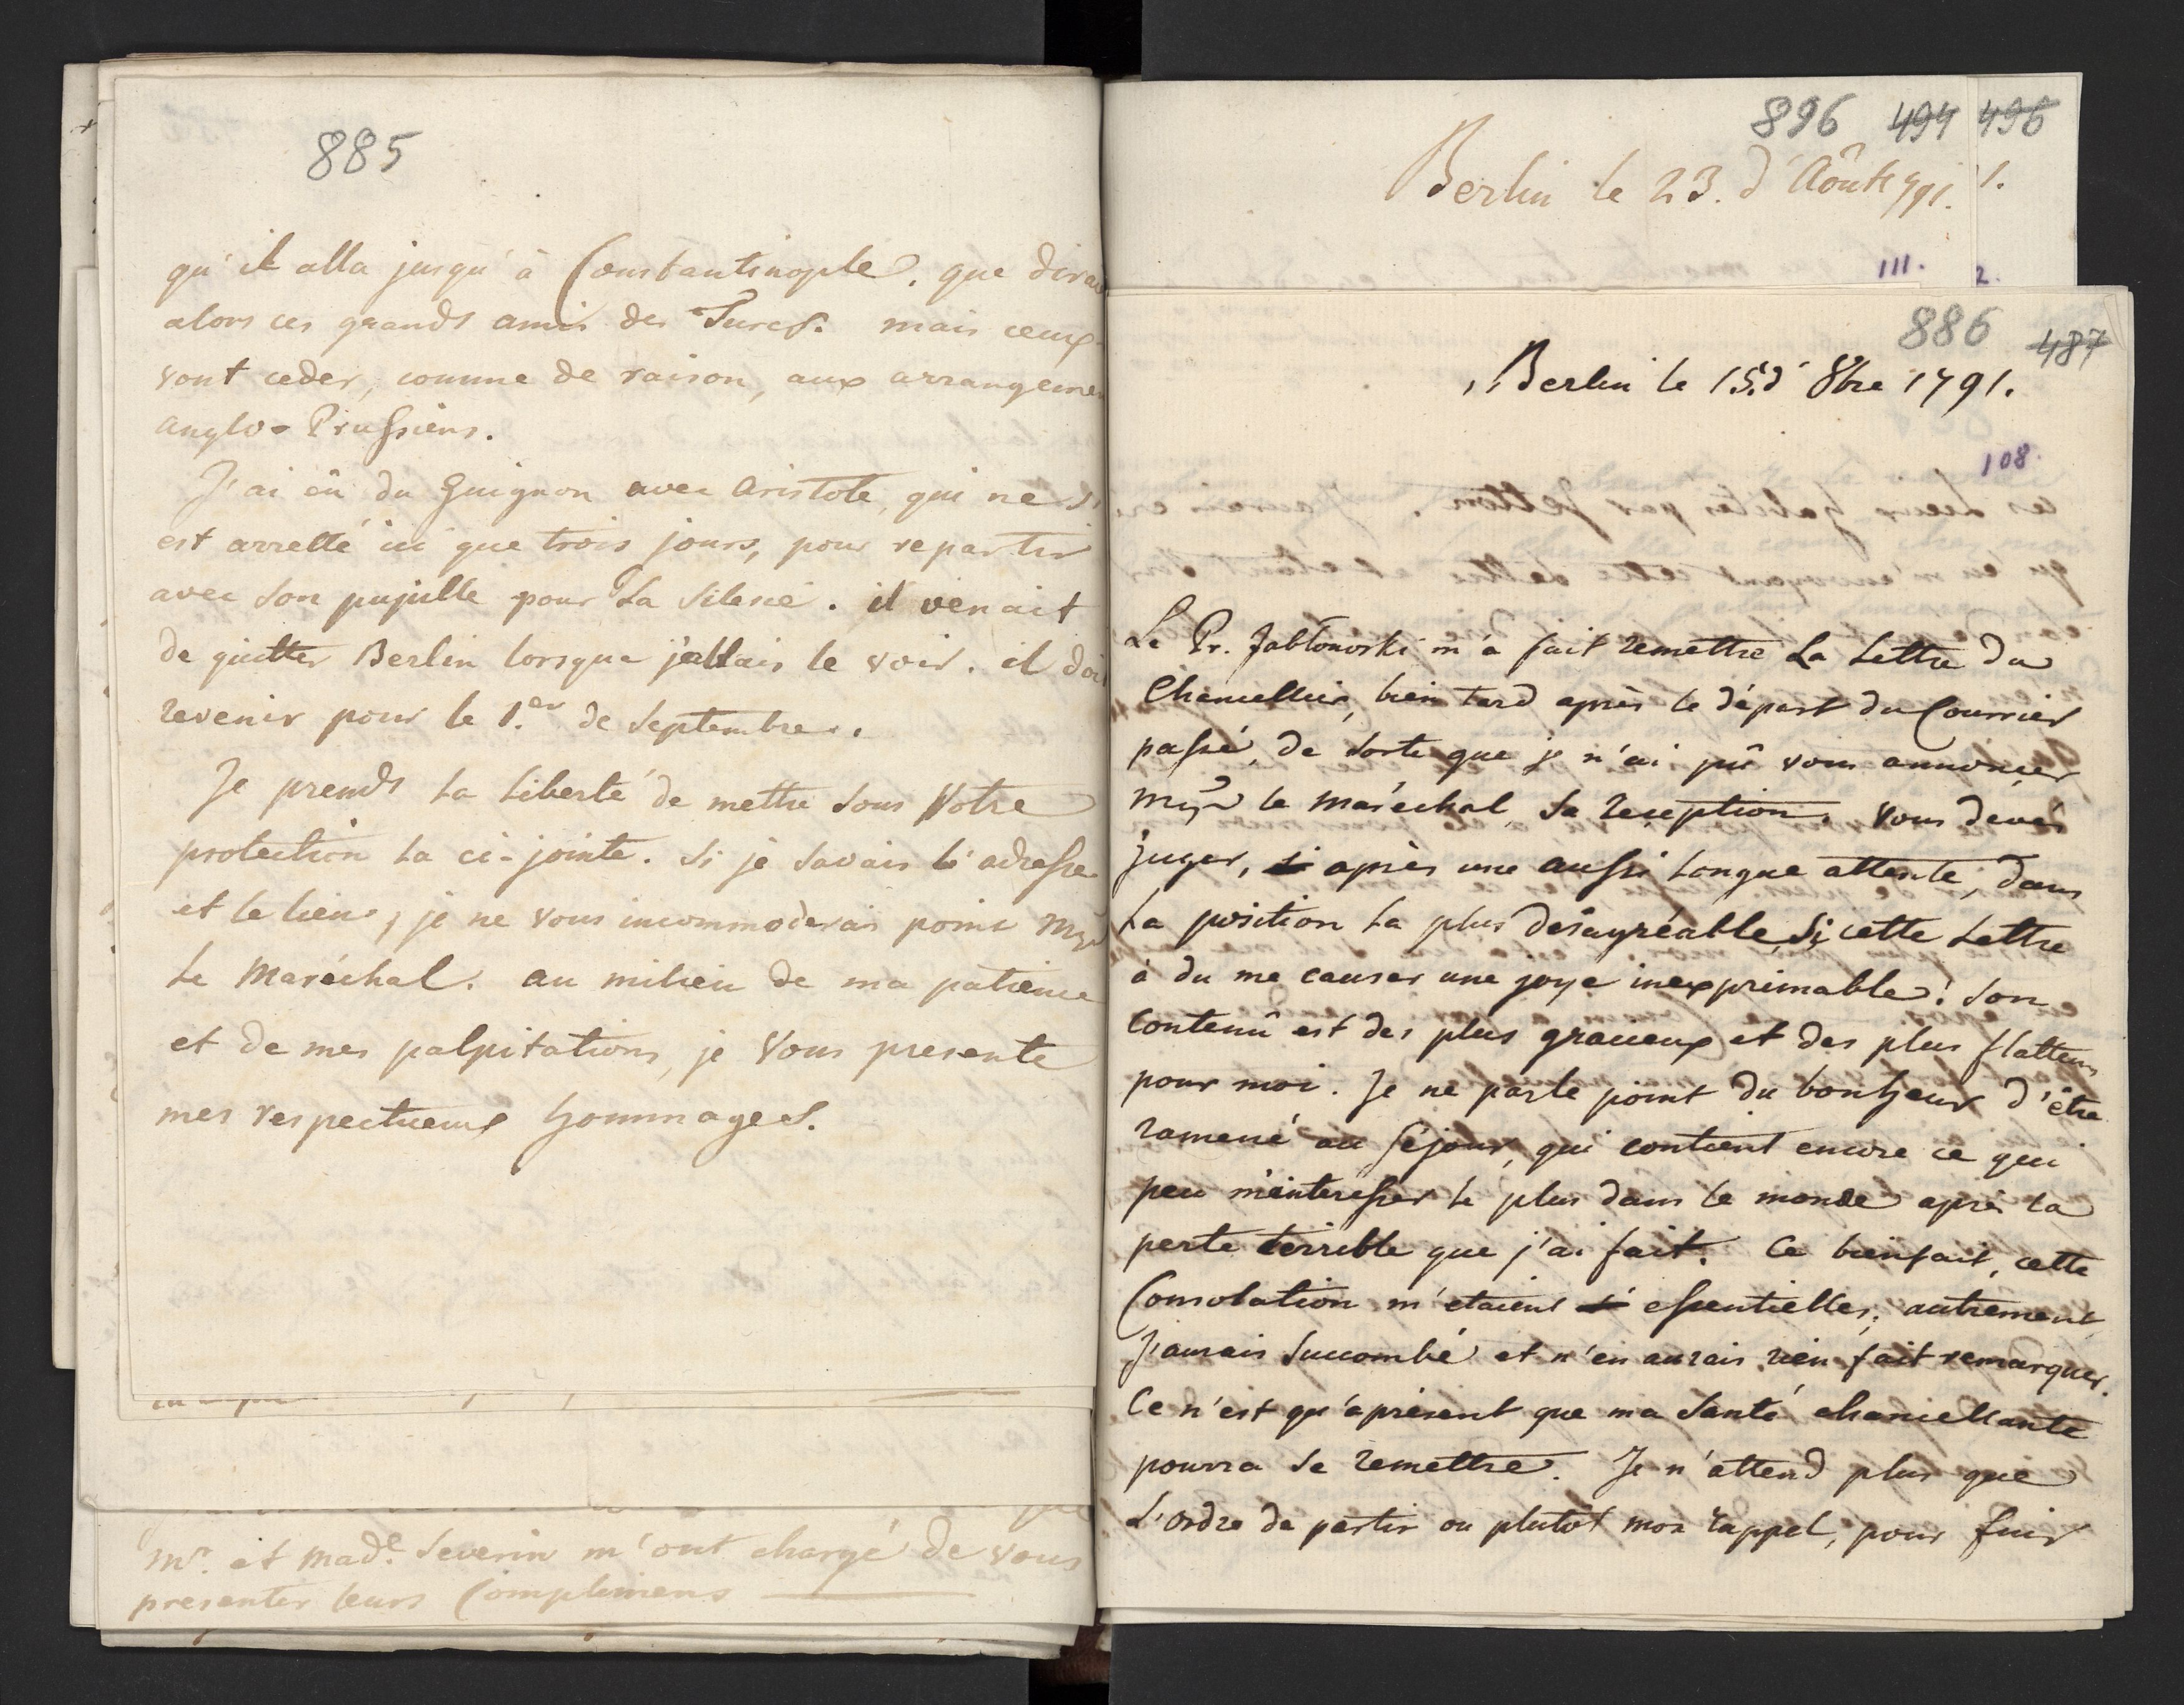 885
qu'il alla jusqu'à Constantinople. que
alors ces grands amis des Turcs. mais ceux
vont ceder, comme de raison, aux
anglo-Prussiens.
J'ai eû du Guignon avec Aristote, qui ne s'
est arretté ici que trois jours, pour repartir
avec son pupille pour La Silesie. il venait
de quitter Berlin lorsque j'allais le voir. il
revenir pour le 1.er de Septembre.
Je prends La Liberté de mettre sous Votre
protection La ci-jointe. Si je savais l'adresse
et le lieu, je ne vous incommoderais point
Le Maréchal. au milieu de ma patience
et de mes palpitations, je Vous presente
mes respectueux hommages.
Mr. et made. Severin m'ont chargé de vous
presenter leurs Complimens
896 494 496
Berlin le 23. d'Aôut 791. 1.
111. 2.
886 487
Berlin le 15. d' 8bre 1791.
108.
Le Pr. Jabłonowski m'a fait remettre La Lettre du
Chancellier, bien tard après le départ du Courrier
passé, de sorte que je n'ai pû vous annoncer
le Maréchal, Sa reception. Vous devés
juger, si après une aussi Longue attente, dans
La position La plus desagréable, Si cette Lettre
à du me causer une joye inexprimable! Son
contenû est des plus gracieux et des plus flatteurs
pour moi. Je ne parle point du bonheur d'être
ramené au séjour, qui contient encore ce qui
peu m'interesser Le plus dans le monde après La
perte terrible que j'ai fait. Ce bienfait, cette
Consolation m'etaient si essentielles; autrement
J'aurais succombé et n'en aurais rien fait remarquer.
Ce n'est qu'àprésent que ma Santé chancellante
pourra se remettre. Je n'attend plus que
L'ordre de partir ou plutôt mon rappel, pour fuir